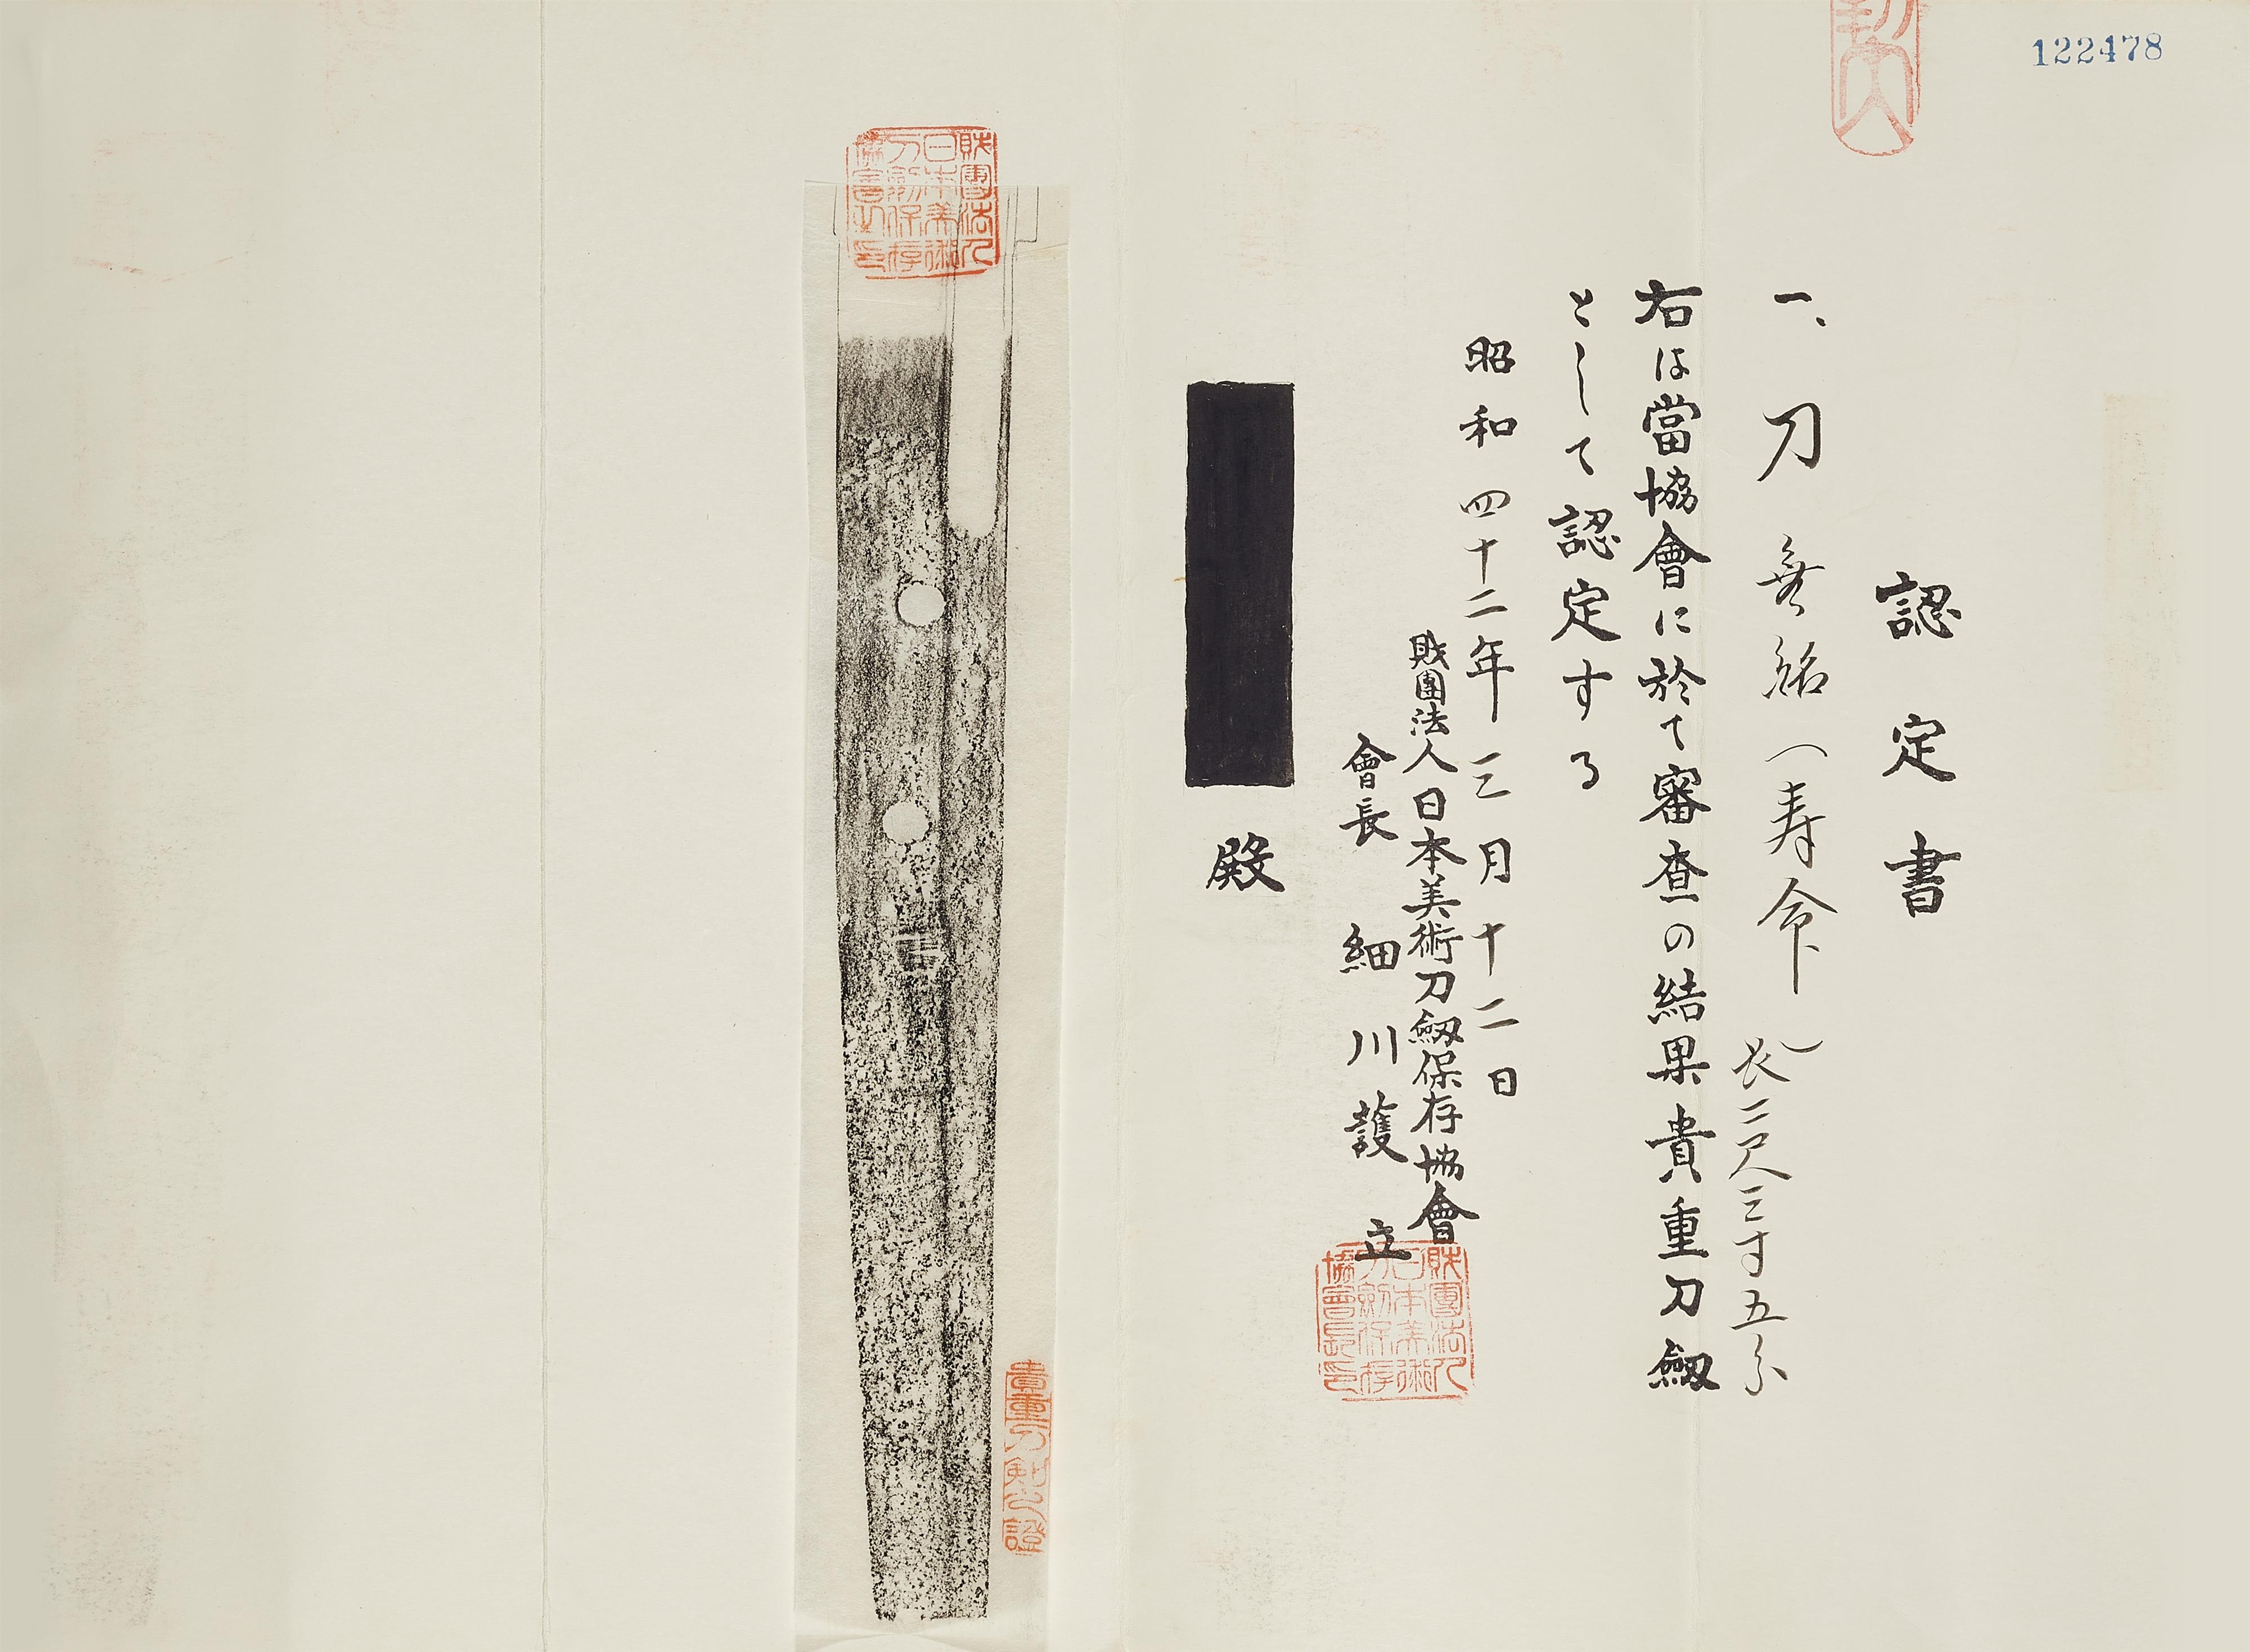 122478
認定書
一、刀 無銘(寿命)
長二尺三寸五分
右は當協會に於て審査の結果貴重刀劔
として認定する
昭和四十二年三月十二日
財團法人日本美術刀劔保存協會
會長 細川護立
殿
財團法人
日本美術
刀劍保存
協會長印
財團法人
日本美術
刀劍保存
協會之印
貴重刀剣之證